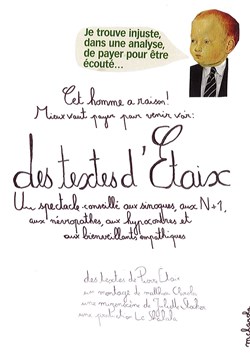 Je trouve injuste,
dans une analyse,
de payer pour être
écouté...
Cet homme a raison!
Mieux vaut payer pour venir voir:
des textes d'Etaix
Un spectacle conseillé aux sinoques, aux N+1,
aux névropathes, aux hypocondres et
aux bienveillants empathiques
des textes de Pierre Etaix
un montage de
une mise en scène de
une production La